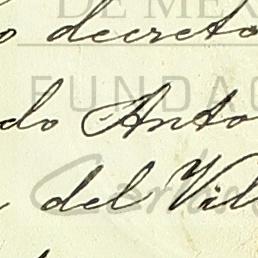 DE MÉX
o decreto
FUNDAC
do Anto
del Vil